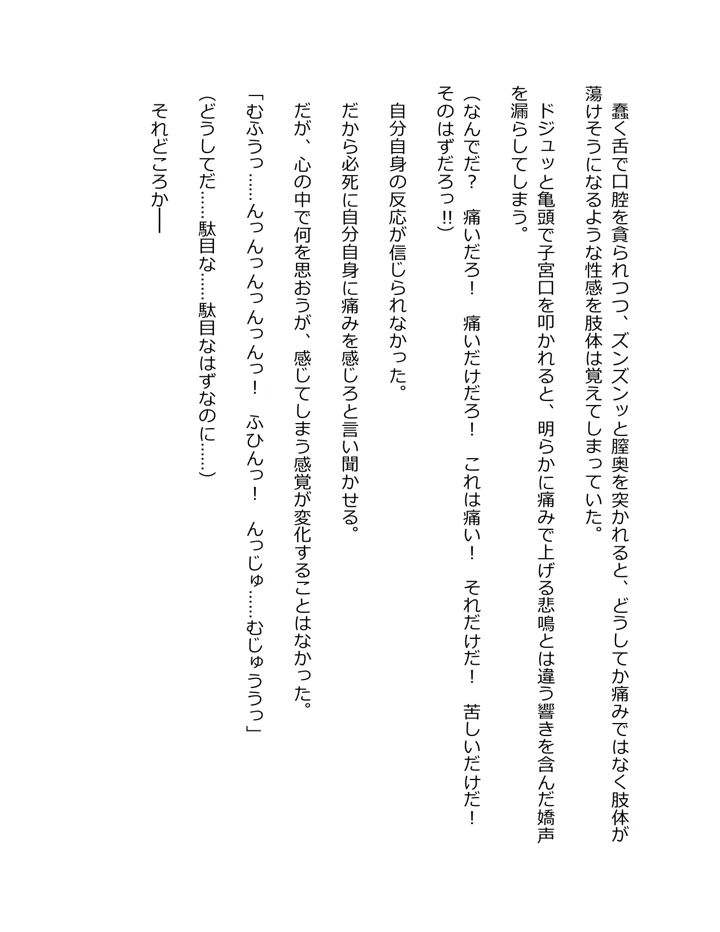 蠢く舌で口腔を貪られつつ、ズンズンッと膣奥を突かれると、どうしてか痛みではなく肢体が
蕩けそうになるような性感を肢体は覚えてしまっていた。
ドジュッと亀頭で子宮口を叩かれると、明らかに痛みで上げる悲鳴とは違う響きを含んだ嬌声
を漏らしてしまう。
(なんでだ？　痛いだろ！　痛いだけだろ！　これは痛い！　それだけだ！　苦しいだけだ！
そのはずだろっ‼)
自分自身の反応が信じられなかった。
だから必死に自分自身に痛みを感じろと言い聞かせる。
だが、心の中で何を思おうが、感じてしまう感覚が変化することはなかった。
「むふうっ……んっんっんっんっんっ！　ふひんっ！　んっじゅ……むじゅううっ」
(どうしてだ……駄目な……駄目なはずなのに……)
それどころか――